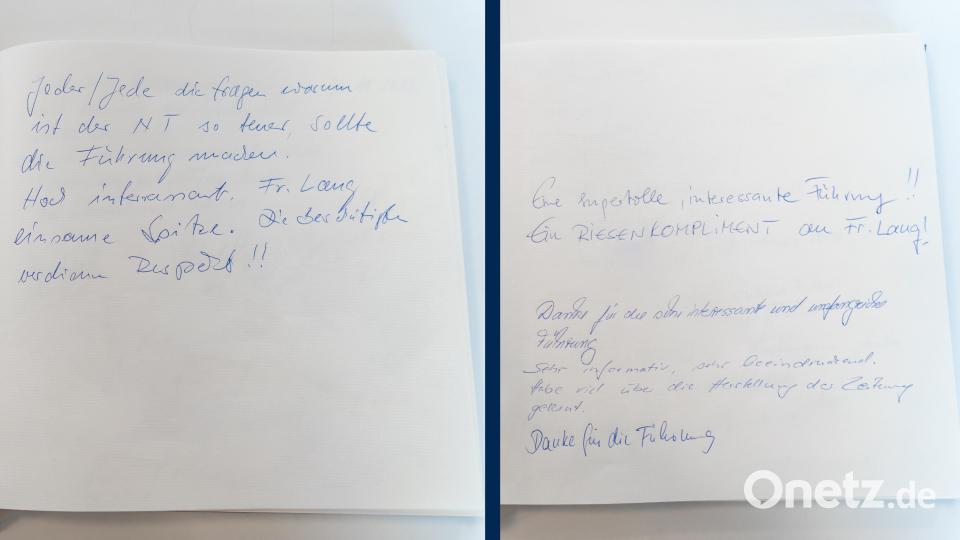 Jeder/Jede die fragen warum
ist der NT so teuer, sollte
die Führung machen.
Hoch interressant. Fr. Lang
einsame Spitze. Die Beschäftigten
verdienen Respekt!!
Eine supertolle, interessante Führung!!
Ein RIESENKOMPLIMENT an Fr. Lang!
Danke für die sehr interessante und umfangreiche
Führung
Sehr informativ, sehr beeindruckend.
Habe viel über die Herstellung der Zeitung
gelernt.
Danke für die Führung
Onetz.de